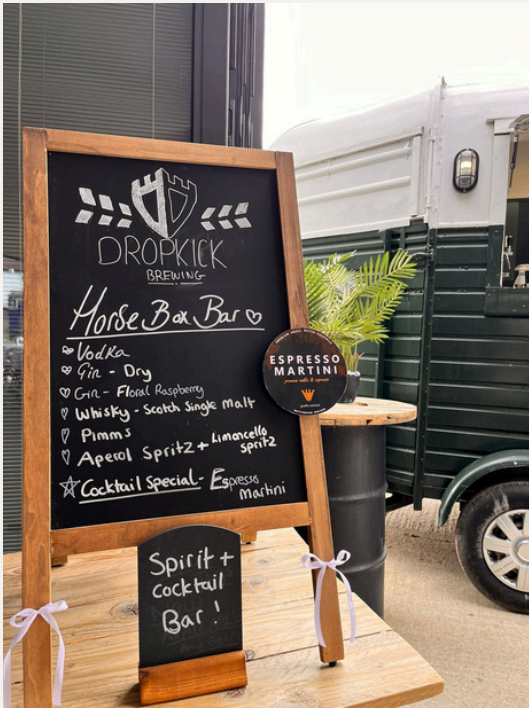 DROPKICK
BREWING
Horse Box Bar
Vodka
Gin - Dry
Gin - Floral Raspberry
Whisky - Scotch Single Malt
Pimms
Aperol Spritz + Limoncello spritz
Cocktail Special - Espresso Martini
ESPRESSO
MARTINI
Spirit +
cocktail
Bar!